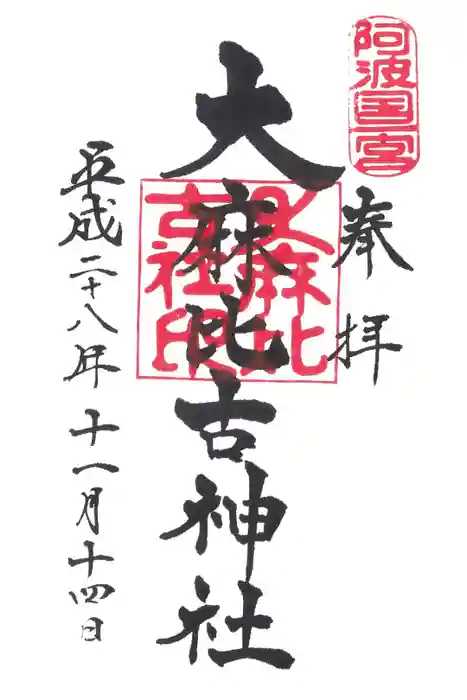 阿波国一宮
奉拝
大麻比古神社
大麻比
古社印
平成二十八年十一月十四日